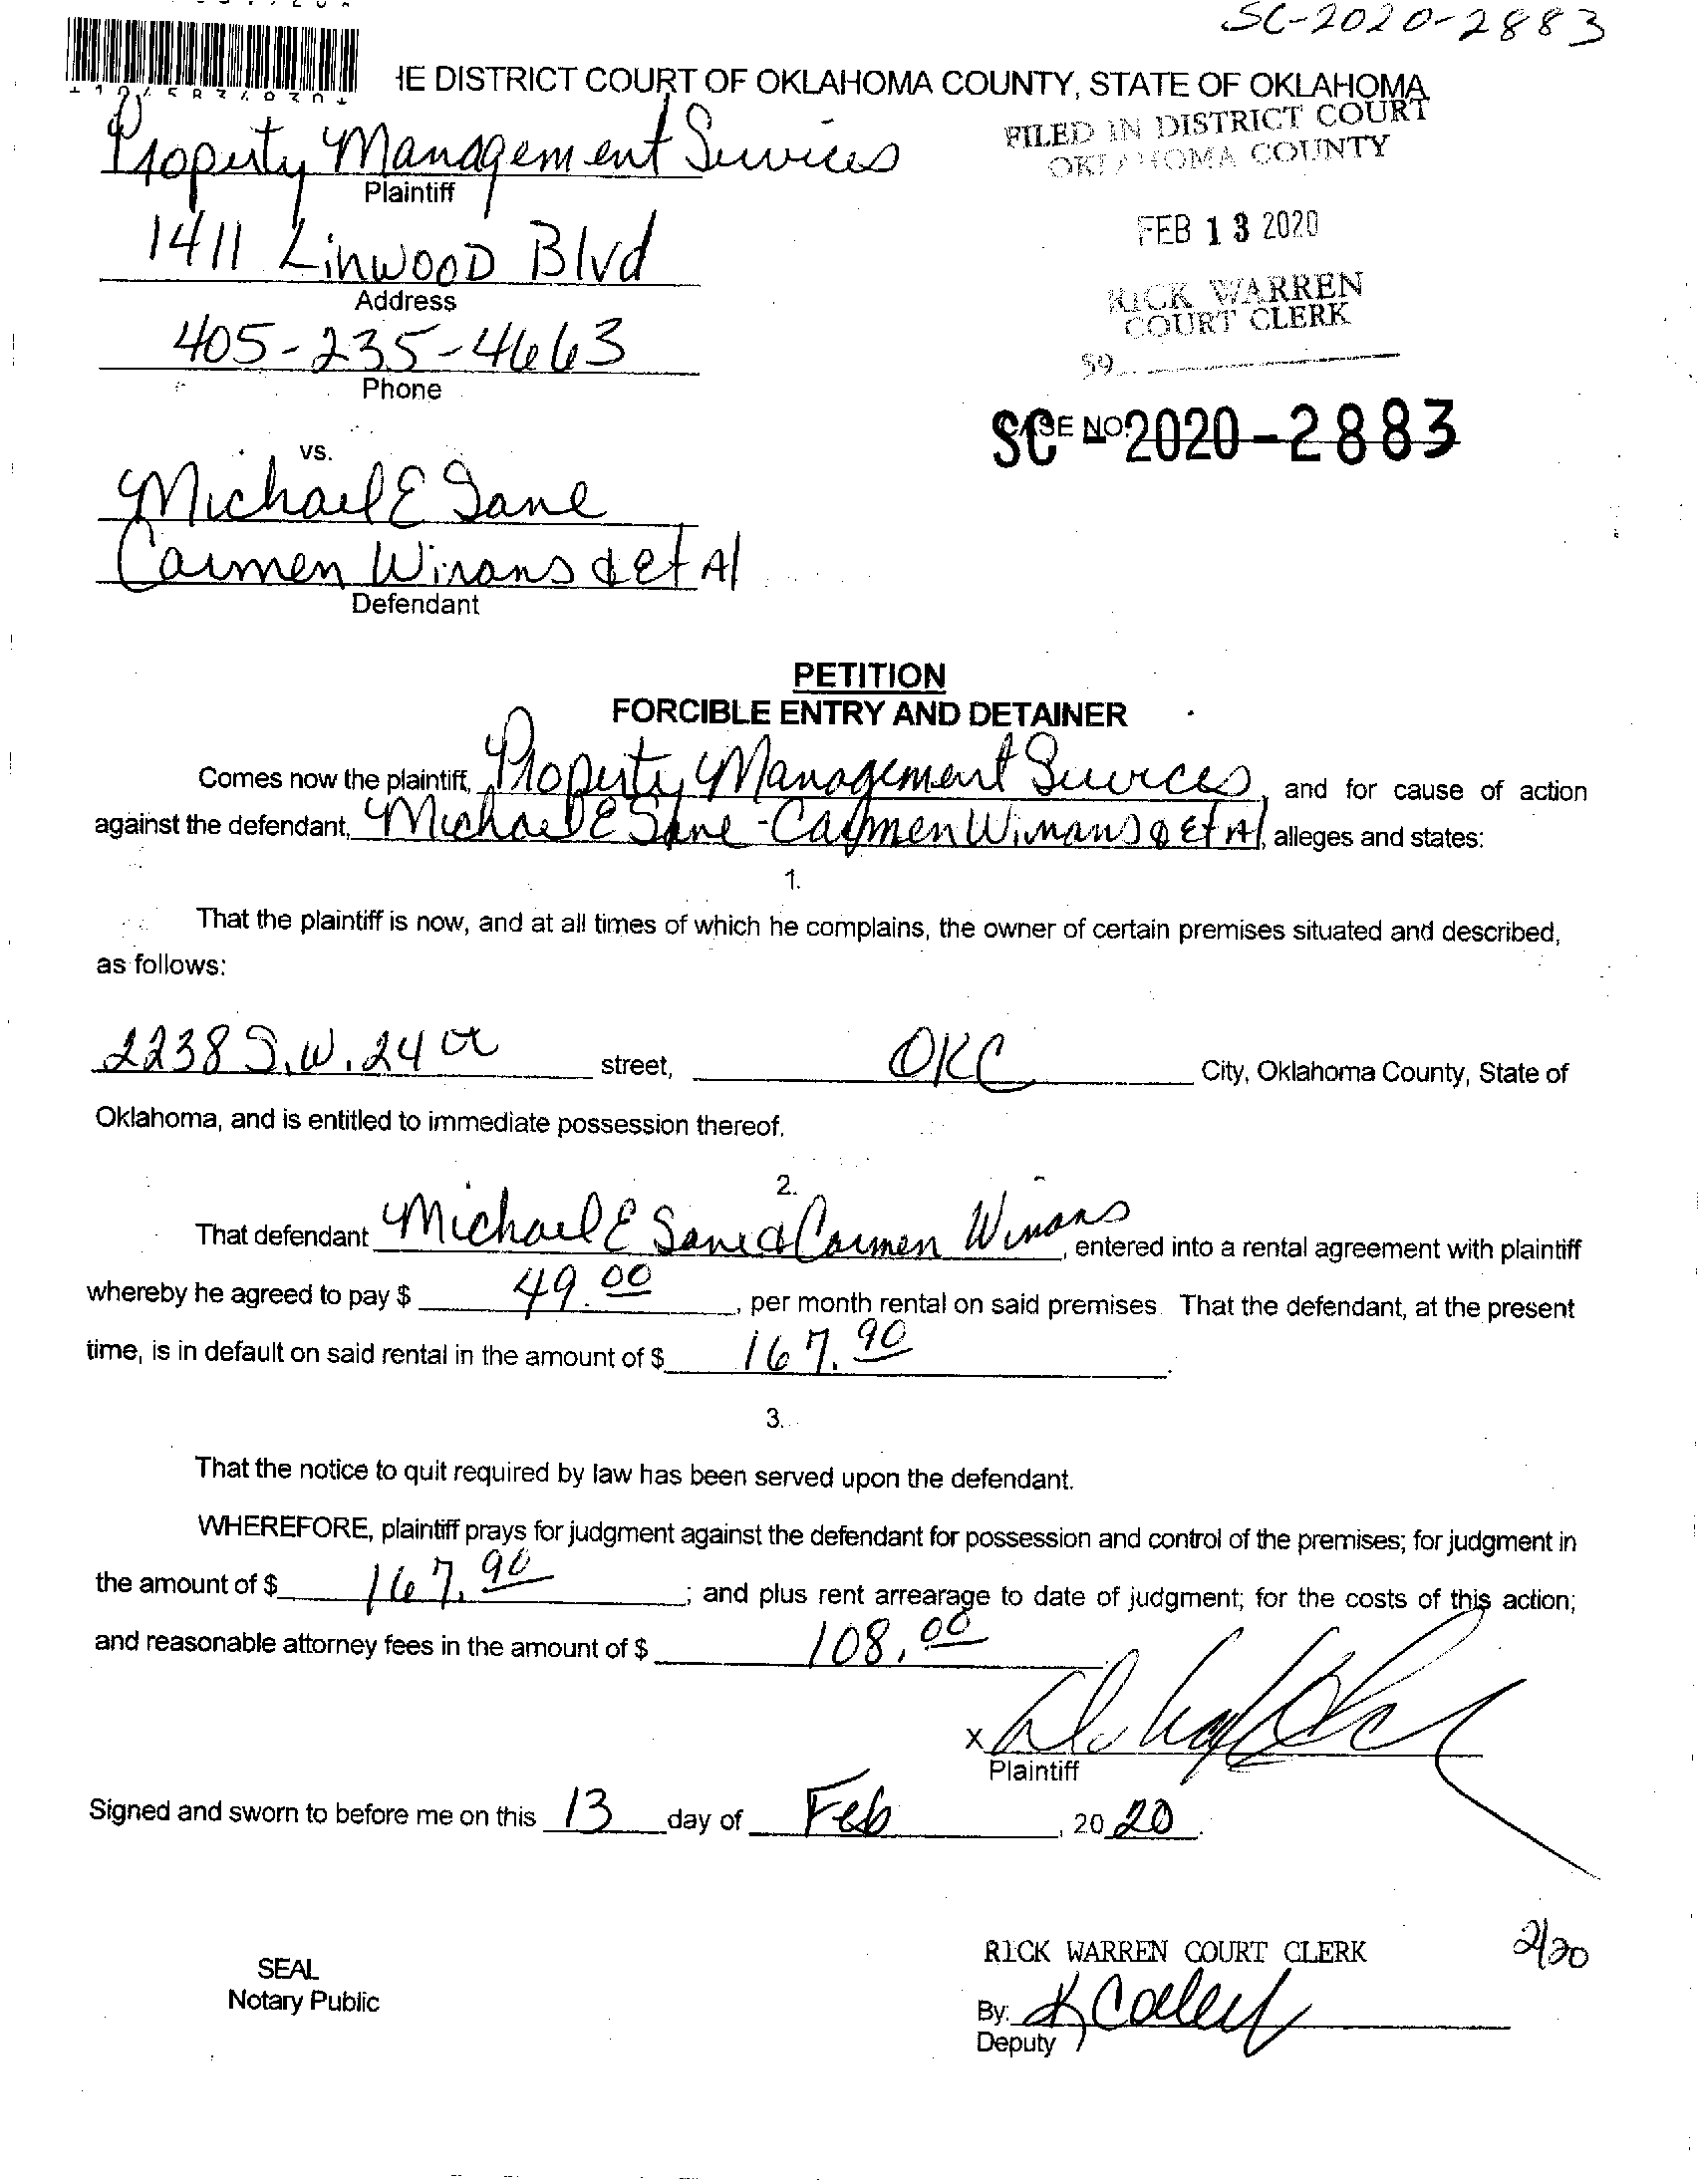 SC-2020-2883
HE DISTRICT COURT OF OKLAHOMA COUNTY, STATE OF OKLAHOMA
FILED IN DISTRICT COURT
OKLAHOMA COUNTY
Property Management Services
Plaintiff
FEB 13 2020
1411 LinwooD Blvd
Address
RICK WARREN
COURT CLERK
405-235-4663
Phone
59
SC CASE NO. 2020-2883
vs.
Michael E Sane
Carmen Winans & et Al
Defendant
PETITION
FORCIBLE ENTRY AND DETAINER
Comes now the plaintiff, Property Management Services, and for cause of action
against the defendant, Michael E Sane - Carmen Winans & Et Al, alleges and states:
1.
That the plaintiff is now, and at all times of which he complains, the owner of certain premises situated and described,
as follows:
2238 S.W. 24th street, OKC City, Oklahoma County, State of
Oklahoma, and is entitled to immediate possession thereof.
2.
That defendant Michael E Sane & Carmen Winans, entered into a rental agreement with plaintiff
whereby he agreed to pay $ 49.00, per month rental on said premises. That the defendant, at the present
time, is in default on said rental in the amount of $ 167.90.
3.
That the notice to quit required by law has been served upon the defendant.
WHEREFORE, plaintiff prays for judgment against the defendant for possession and control of the premises; for judgment in
the amount of $ 167.90; and plus rent arrearage to date of judgment; for the costs of this action;
and reasonable attorney fees in the amount of $ 108.00
x
Plaintiff
Signed and sworn to before me on this 13 day of Feb, 2020.
RICK WARREN COURT CLERK
2/20
SEAL
Notary Public
By:
Deputy